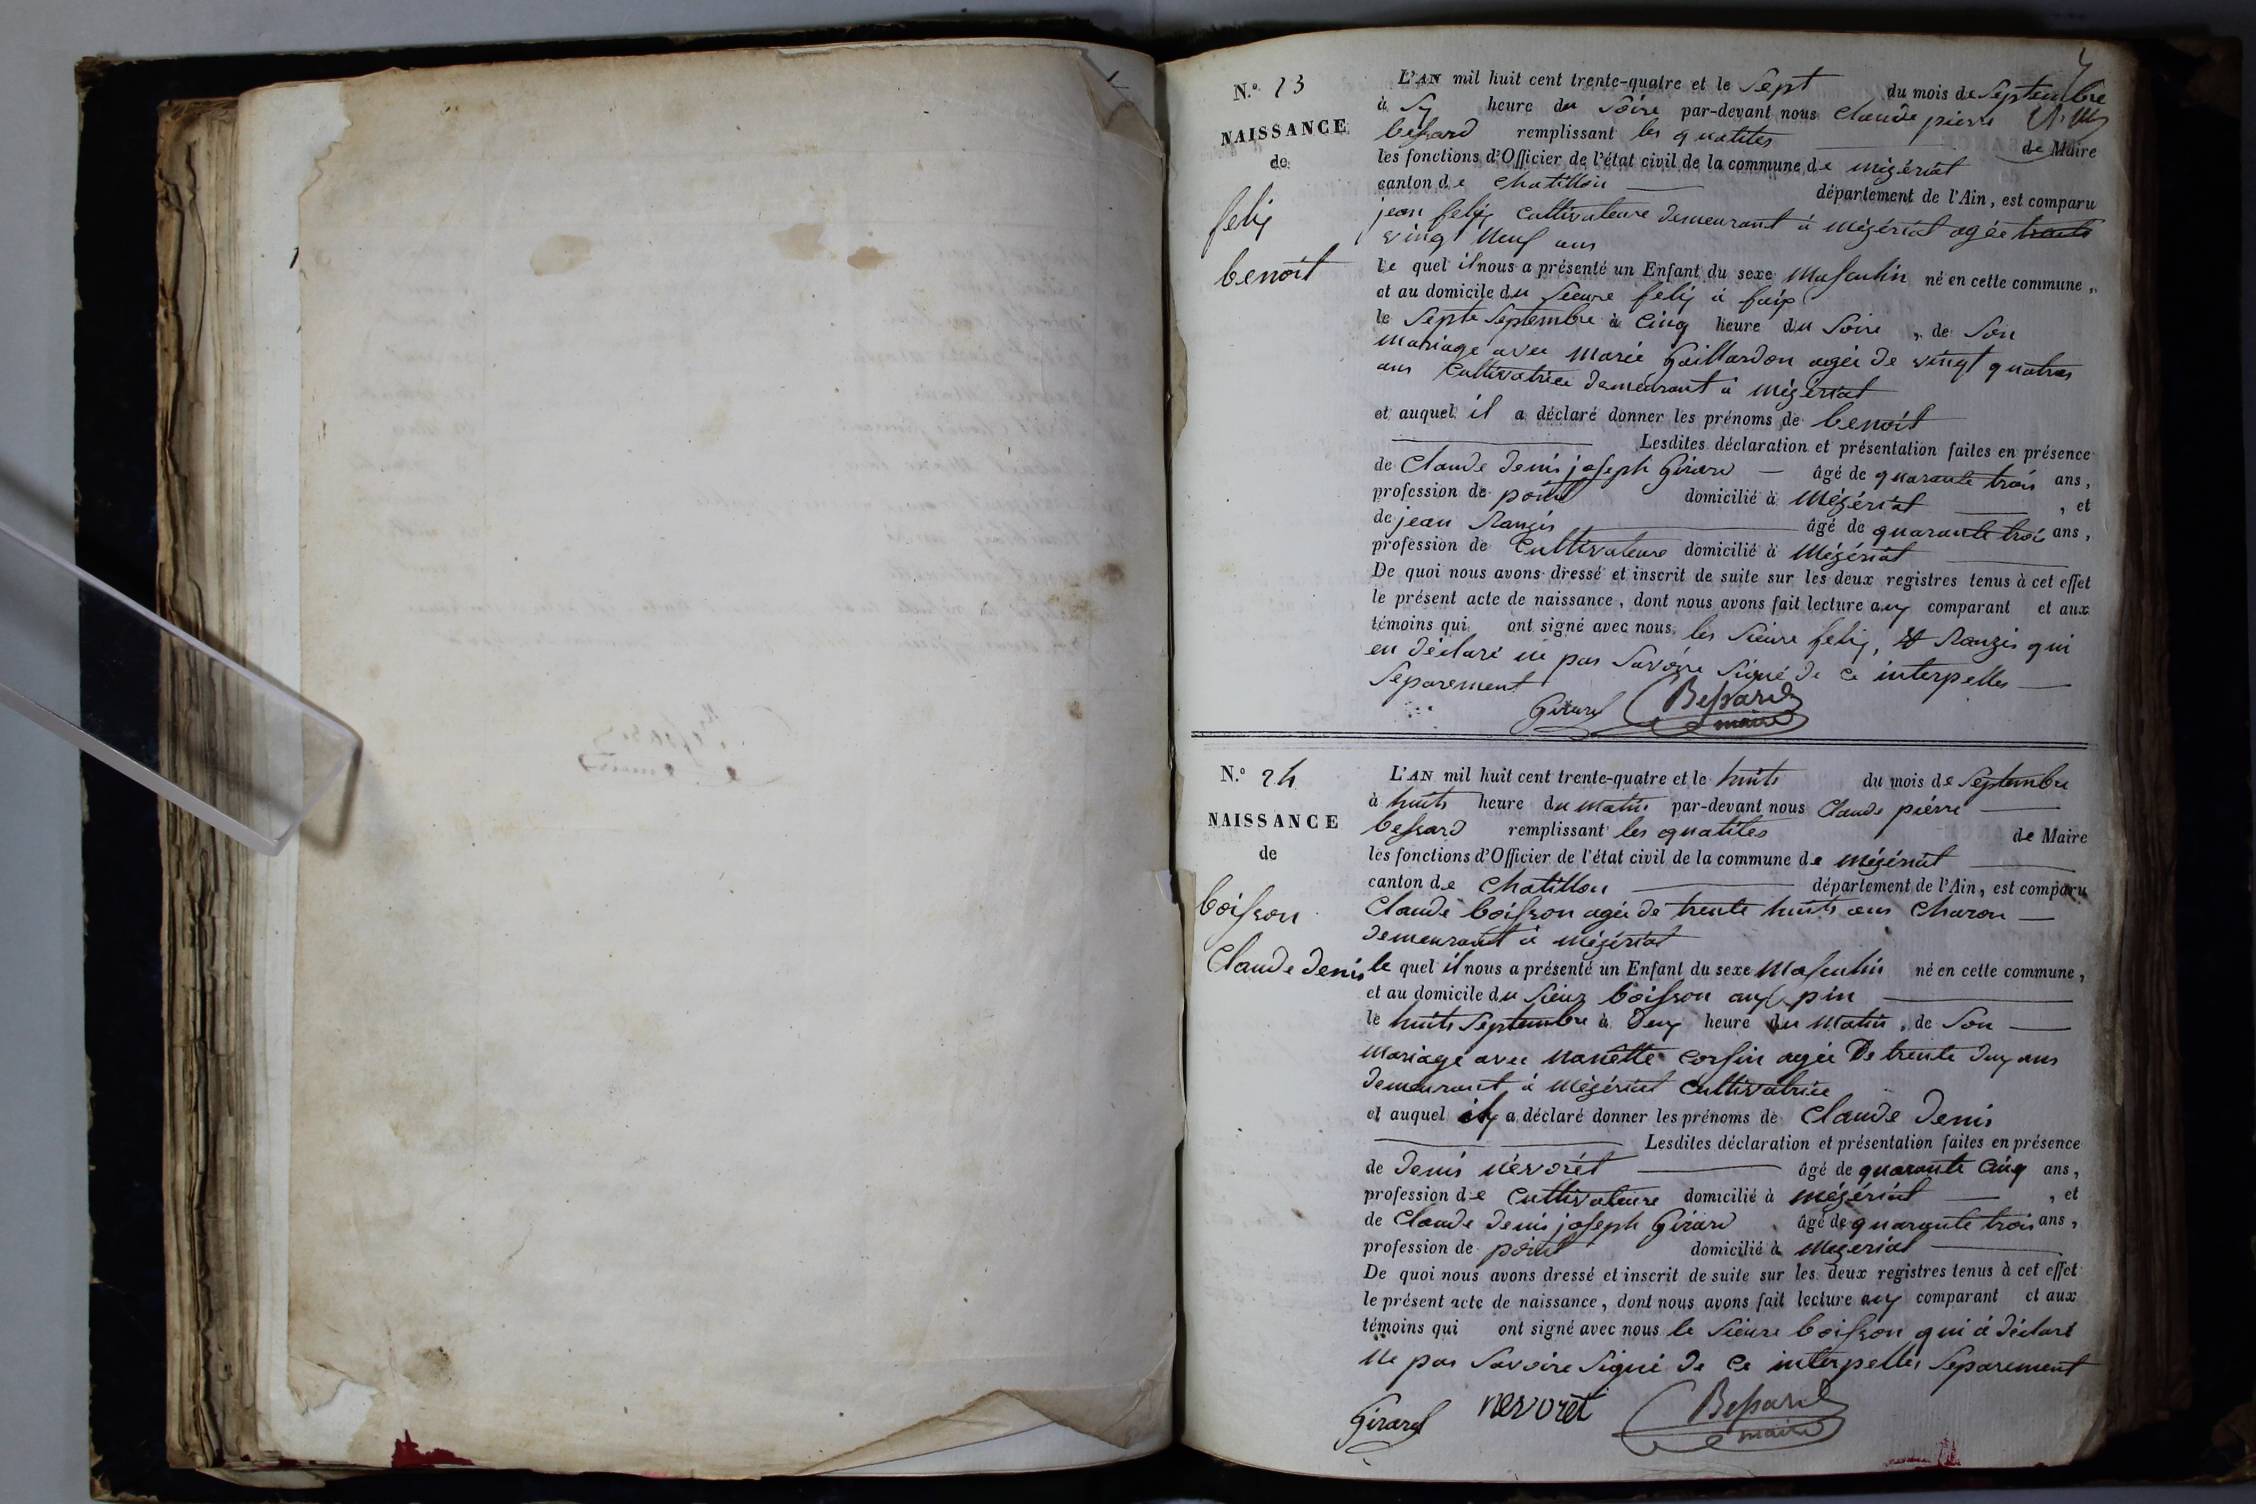 N.° 23
NAISSANCE
de
felix
benoit
L'AN mil huit cent trente-quatre et le Sept du mois de Septembre
à Six heure du Soire par-devant nous Claude pierre
bessard remplissant les qualites de Maire
les fonctions d'Officier de l'état civil de la commune de mézériat
canton de chatillon département de l'Ain, est comparu
jean felix cultivateure demeurant à mézériat agée trente
vingt neuf ans
le quel il nous a présenté un Enfant du sexe Masculin né en cette commune,
et au domicile du Sieure felix à
le Septe Septembre à Cinq heure du Soire, de Son
mariage avec marie Gaillardon agée de vingt quatres
ans Cultivatrice demeurant à mézériat
et auquel il a déclaré donner les prénoms de benoit
Lesdites déclaration et présentation faites en présence
de Claude denis joseph Girard âgé de quarante trois ans,
profession de domicilié à Mézériat, et
de jean Rongis âgé de quarante trois ans,
profession de Cultivateure domicilié à Mézériat
De quoi nous avons dressé et inscrit de suite sur les deux registres tenus à cet effet
le présent acte de naissance, dont nous avons fait lecture aux comparant et aux
témoins qui ont signé avec nous les Sieure felix, et Rongis qui
en déclaré ne pas Savoire Signé de ce interpelles
Séparement
Girard Bessard
maire
N.° 24
NAISSANCE
de
boisson
Claude denis
L'AN mil huit cent trente-quatre et le huits du mois de Septembre
à huits heure du matin par-devant nous Claude piérre
bessard remplissant les qualites de Maire
les fonctions d'Officier de l'état civil de la commune de mézériat
canton de Chatillon département de l'Ain, est comparu
Claude boisson agée de trente huits ans Charon
demeurant à mézériat
le quel il nous a présenté un Enfant du sexe Masculin né en cette commune,
et au domicile du Sieur boisson aux pin
le huits Septembre à deux heure du Matin, de Son
mariage avec nanette corsin agée De trente dux ans
demeurant à mézériat Cultivatrice
et auquel il a déclaré donner les prénoms de Claude denis
Lesdites déclaration et présentation faites en présence
de denis nérvorét âgé de quarante Cinq ans,
profession de Cultivateure domicilié à mézériat, et
de Claude denis joseph Girard âgé de quarante trois ans,
profession de domicilié à Mézériat
De quoi nous avons dressé et inscrit de suite sur les deux registres tenus à cet effet
le présent acte de naissance, dont nous avons fait lecture aux comparant et aux
témoins qui ont signé avec nous le Sieure boisson qui à déclaré
ne pas Savoire Signé de ce interpelles Séparement
Girard nervoret Bessard
maire